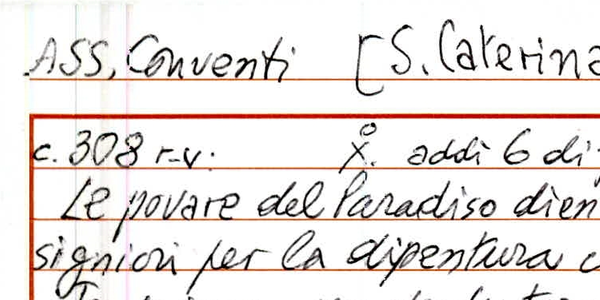 ASS, Conventi [S. Caterina
c. 308 r-v. X°. addi 6 di
Le povare del Paradiso dien
signiori per la dipentura